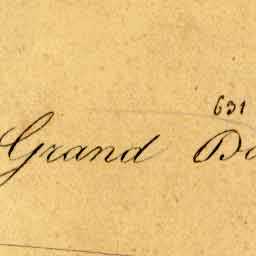 631
Grand